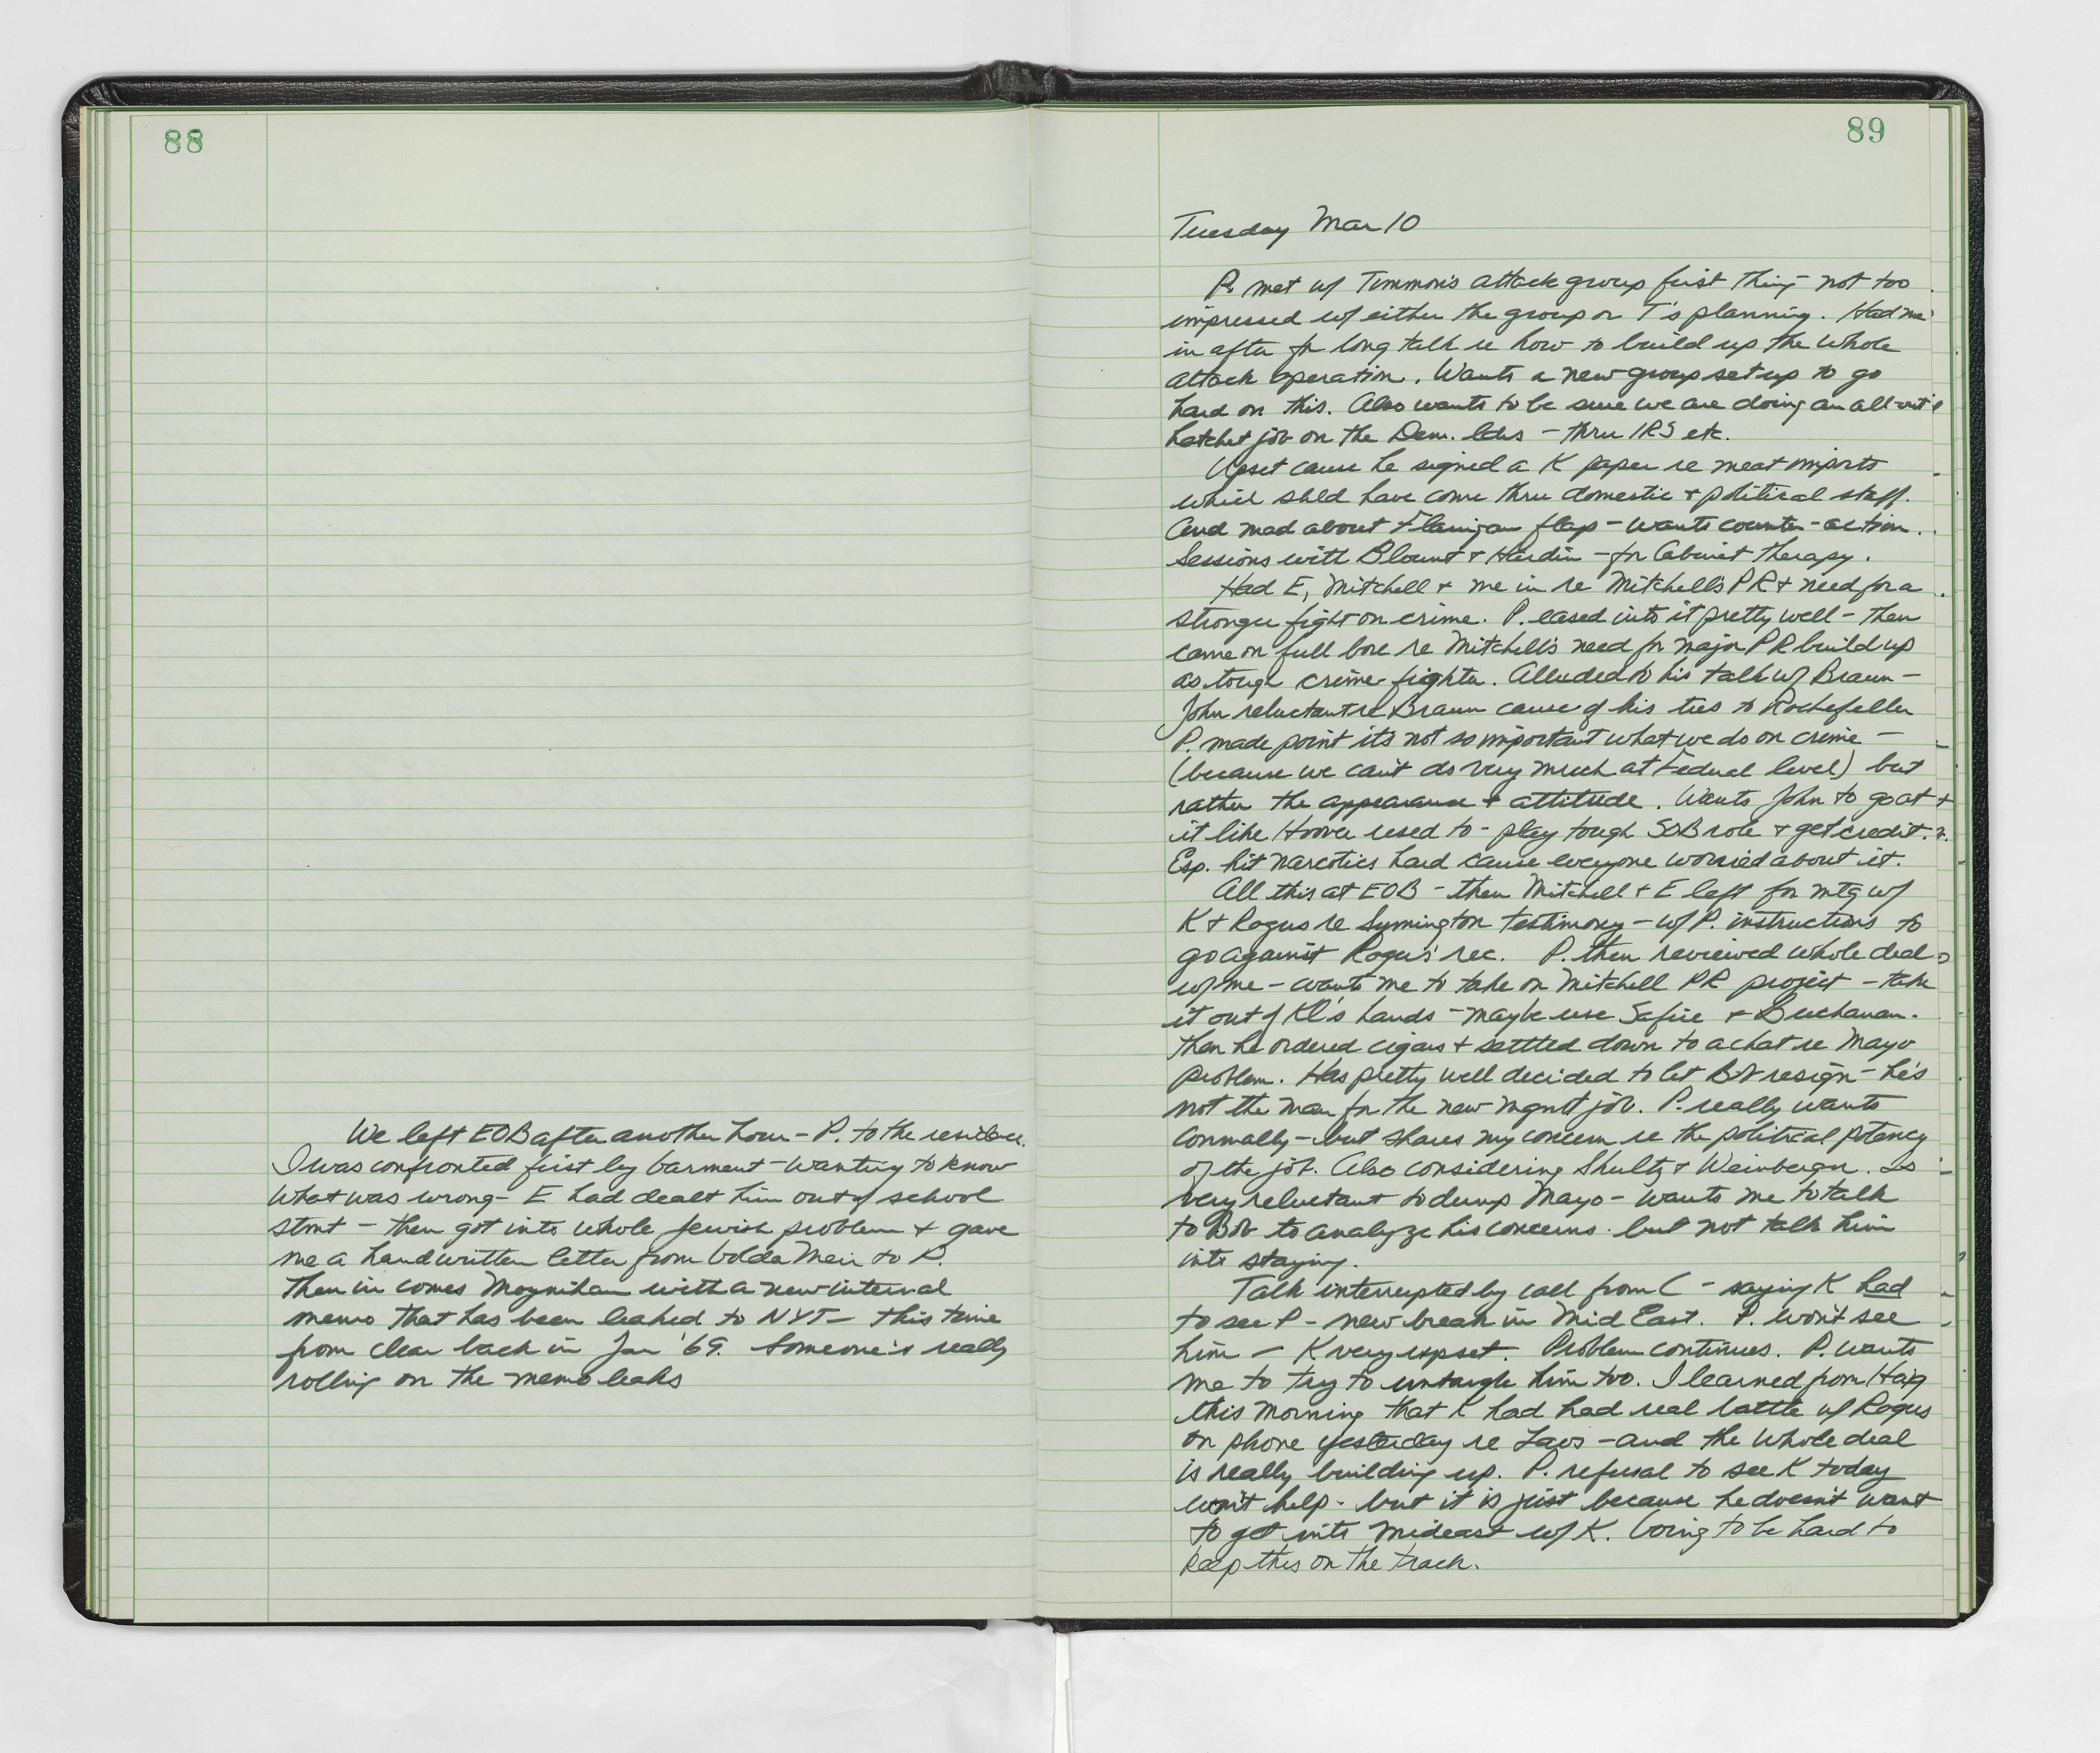 88
We left EOB after another hour - P. to the residence.
I was confronted first by Garment - wanting to know
what was wrong - E had dealt him out of school
stmt - then got into whole Jewish problem + gave
me a handwritten letter from Golda Meir to P.
Then in comes Moynihan with a new internal
memo that has been leaked to NYT - this time
from clear back in Jan '69. Someone's really
rolling on the memo leaks
89
Tuesday Mar 10
P. met w/ Timmons attack group first thing - not too
impressed w/ either the group or T's planning. Had me
in after for long talk re how to build up the whole
attack operation. Wants a new group set up to go
hard on this. Also wants to be sure we are doing an all-out
hatchet job on the Dem. ldrs - thru IRS etc.
Upset cause he signed a K paper re meat imports
which shld have come thru domestic + political staff.
And mad about Flanigan flaps - wants counter-action.
Sessions with Blount + Hardin - for Cabinet therapy.
Had E, Mitchell + me in re Mitchell's PR + need for a
stronger fight on crime. P. eased into it pretty well - then
came on full bore re Mitchell's need for major PR build up
as tough crime fighter. Alluded to his talk w/ Braun -
John reluctant re Braun cause of his ties to Rockefeller
P. made point it's not so important what we do on crime -
(because we can't do very much at Federal level) but
rather the appearance + attitude. Wants John to go at
it like Hoover used to - play tough SOB role + get credit.
Esp. hit narcotics hard cause everyone worried about it.
All this at EOB - then Mitchell + E left for mtg w/
K + Rogers re Symington testimony - w/ P. instructions to
go against Rogers' rec. P. then reviewed whole deal
w/ me - wants me to take on Mitchell PR project - take
it out of Kl's hands - maybe use Safire + Buchanan.
Then he ordered cigars + settled down to a chat re Mayo
problem. Has pretty well decided to let Bob resign - he's
not the man for the new mgmt job. P. really wants
Connally - but shares my concern re the political potency
of the job. Also considering Shultz + Weinberger. Is
very reluctant to dump Mayo - wants me to talk
to Bob to analyze his concerns. but not talk him
into staying.
Talk interrupted by call from C - saying K had
to see P - new break in Mid East. P. won't see
him - K very upset. Problem continues. P. wants
me to try to untangle him too. I learned from Haig
this morning that K had had real battle w/ Rogers
on phone yesterday re Laos - and the whole deal
is really building up. P. refusal to see K today
won't help - but it is just because he doesn't want
to get into Mideast w/ K. Going to be hard to
keep this on the track.